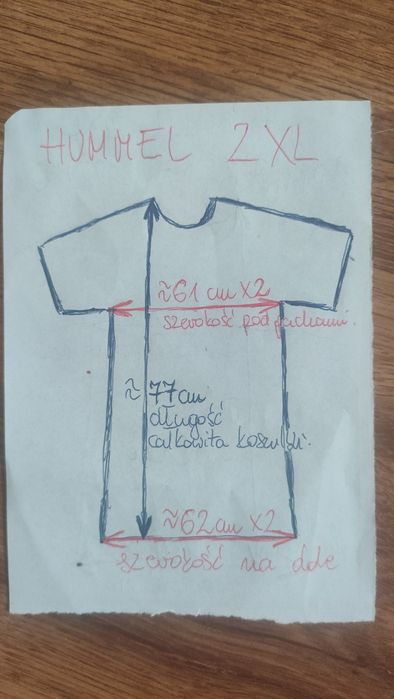 HUMMEL 2XL
≈61 cm x2
szerokość pod pachami.
≈ 77cm
długość
całkowita koszulki.
≈62cm x2
szerokość na dole